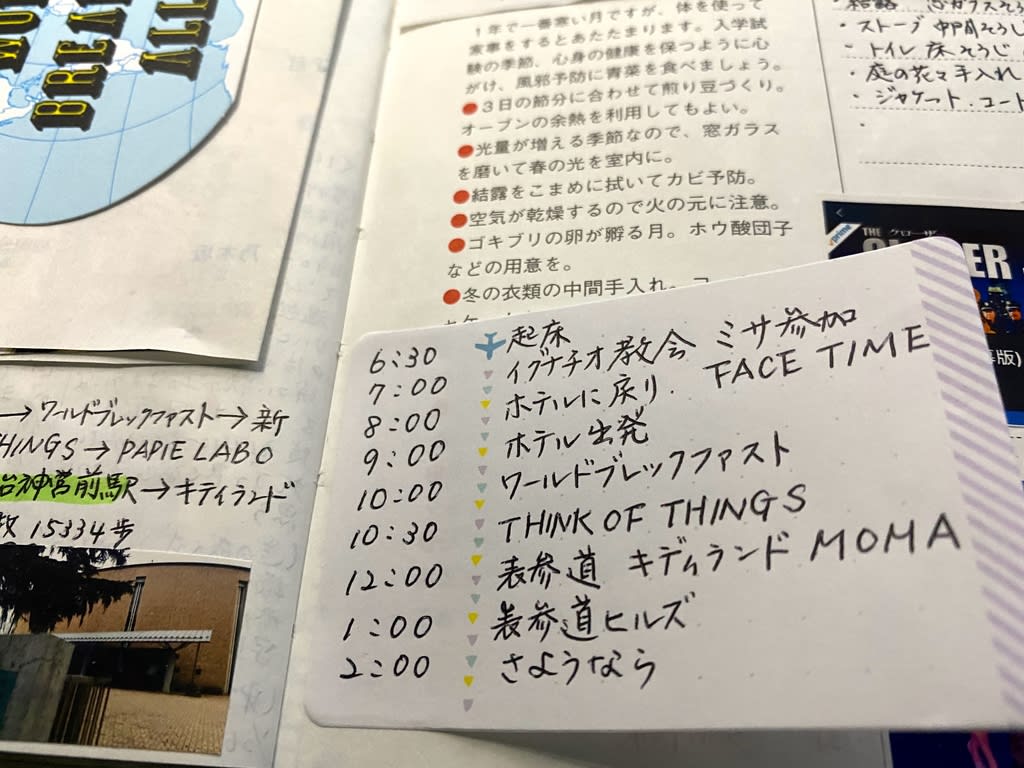 BREA
ALL
1年で一番寒い月ですが、体を使って
家事をするとあたたまります。入学試
験の季節、心身の健康を保つように心
がけ、風邪予防に青菜を食べましょう。
●3日の節分に合わせて煎り豆づくり。
オーブンの余熱を利用してもよい。
●光量が増える季節なので、窓ガラス
を磨いて春の光を室内に。
●結露をこまめに拭いてカビ予防。
●空気が乾燥するので火の元に注意。
●ゴキブリの卵が孵る月。ホウ酸団子
などの用意を。
●冬の衣類の中間手入れ。コ
・ストーブ 中間そうじ
・トイレ 床そうじ
・庭の花々手入れ
・ジャケット.コート
prime
THE クローザー
ER
版)
6:30 起床
7:00 イグナチオ教会 ミサ参加
8:00 ホテルに戻り. FACE TIME
9:00 ホテル出発
10:00 ワールドブレックファスト
10:30 THINK OF THINGS
12:00 表参道 キディランド MOMA
1:00 表参道ヒルズ
2:00 さようなら
→ワールドブレックファスト→新
THINGS→PAPIE LABO
神宮前駅→キディランド
15334歩